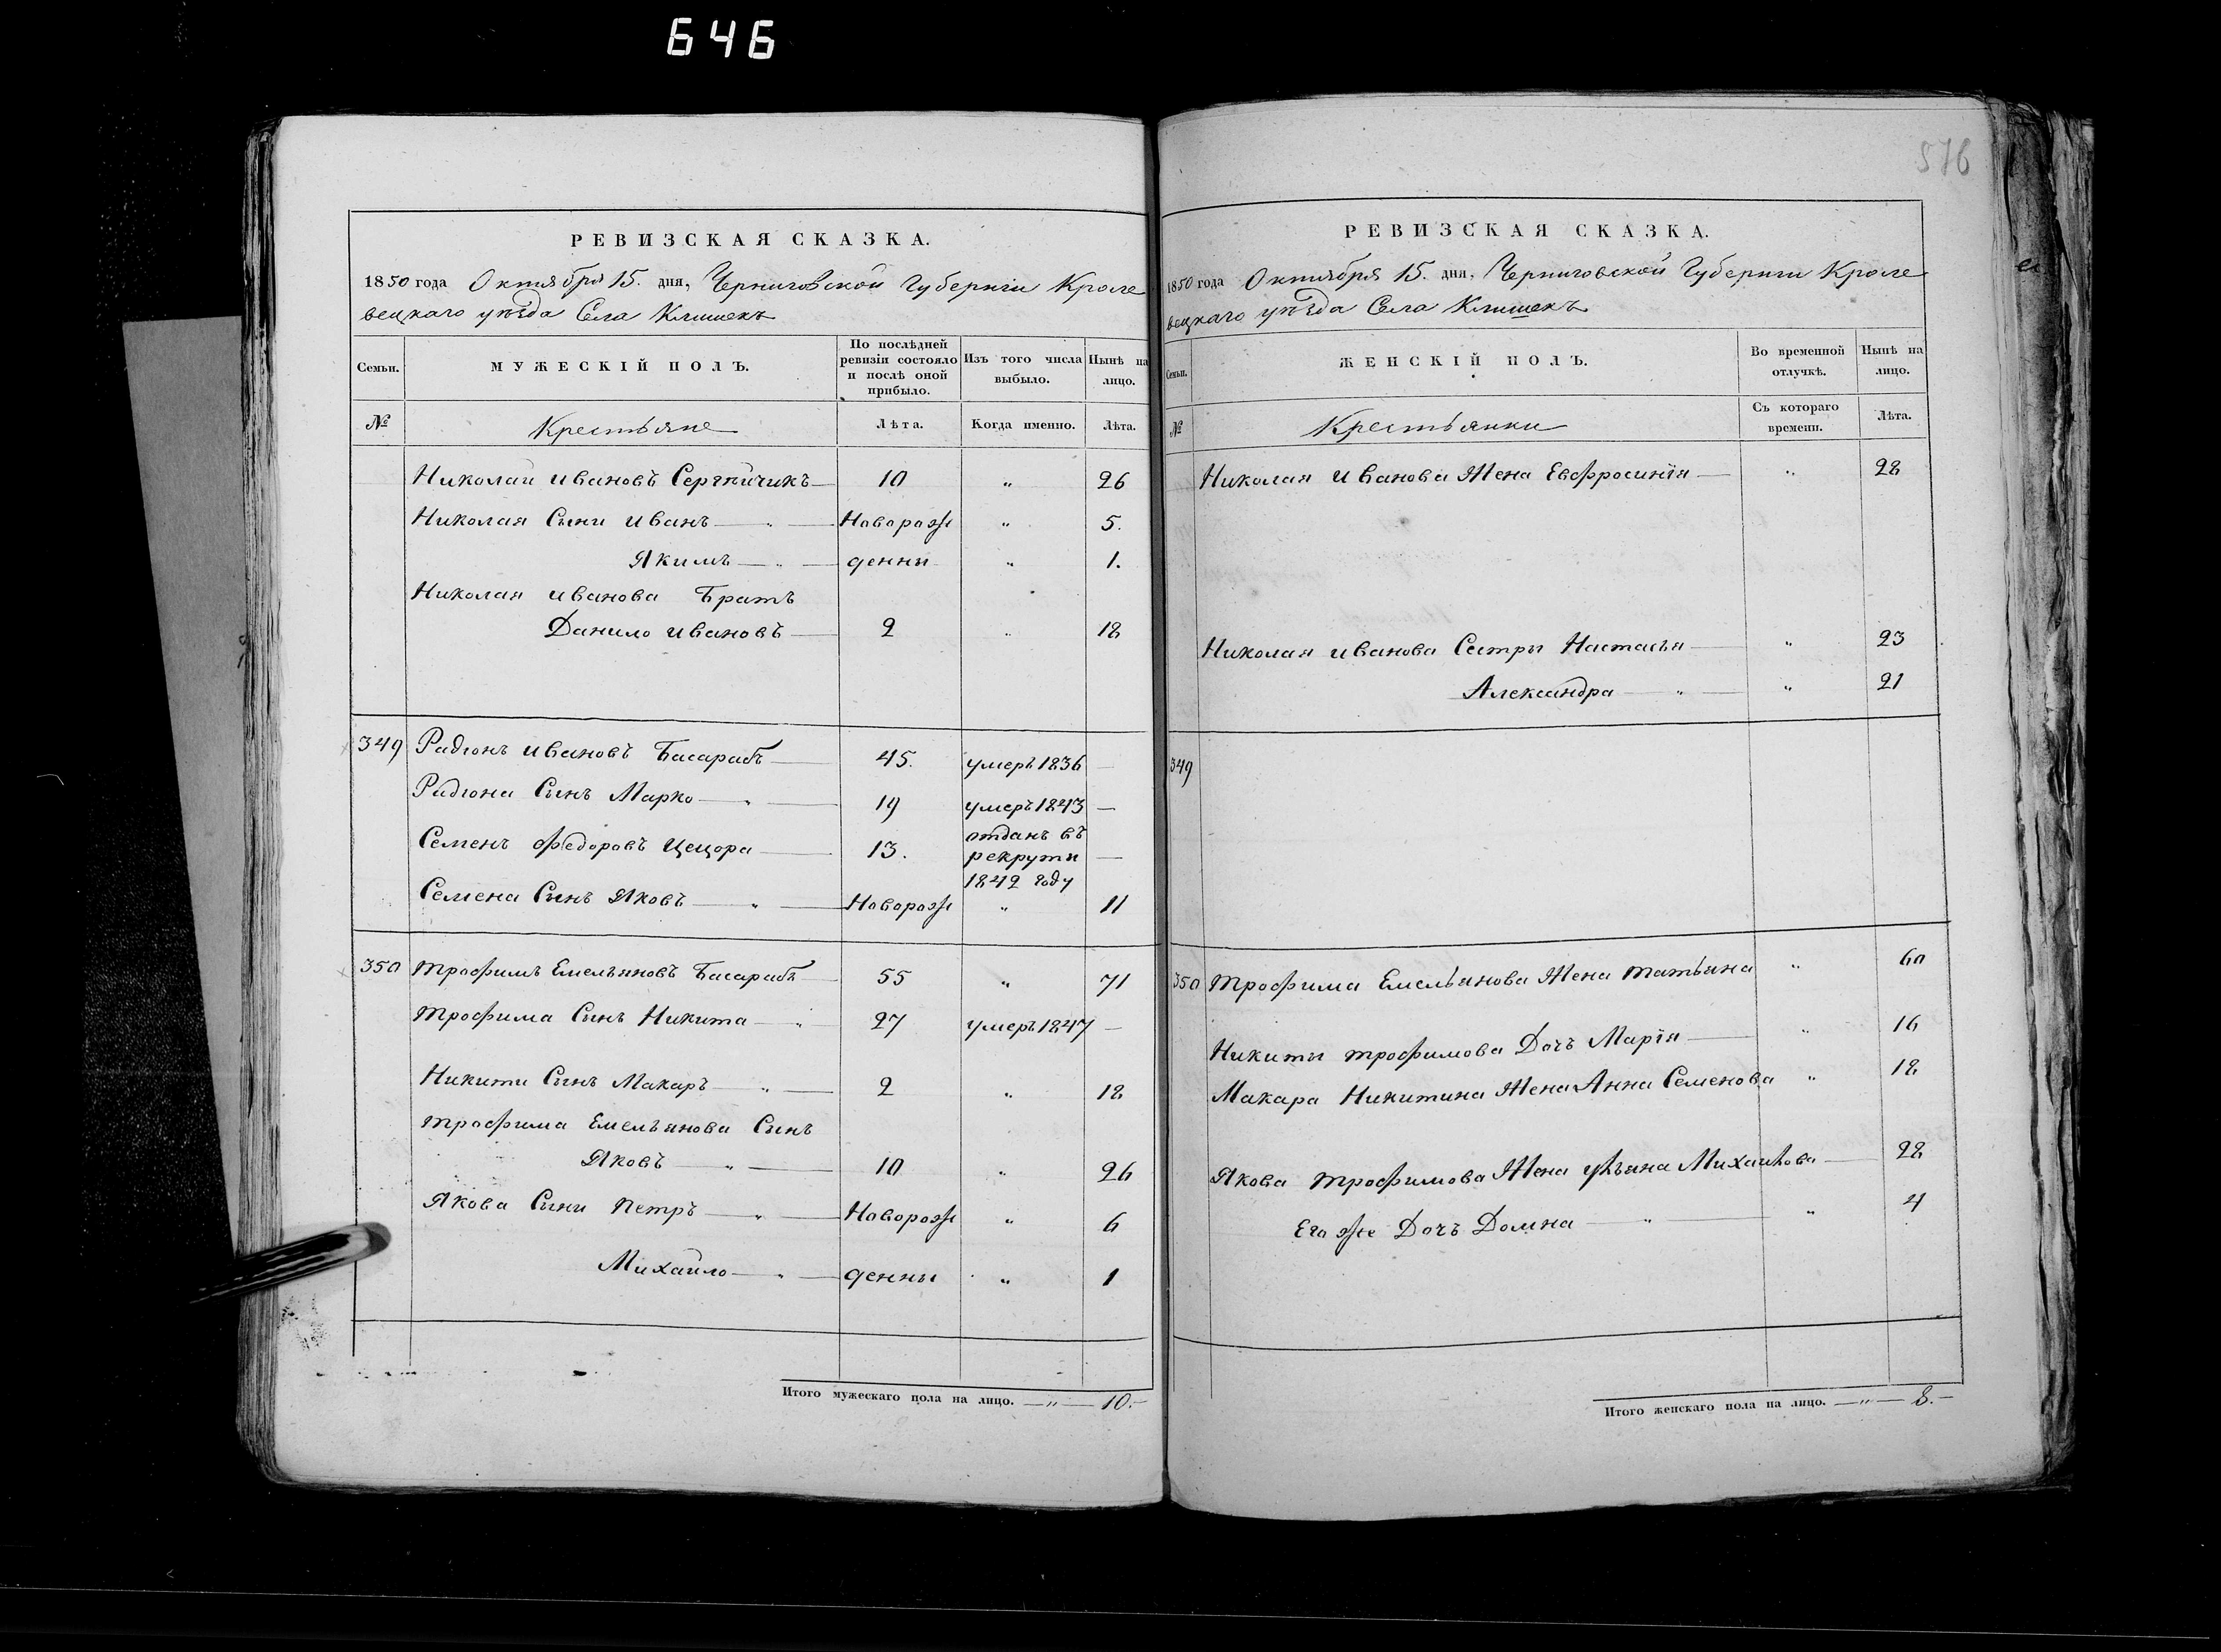 646
РЕВИЗСКАЯ СКАЗКА.
1850 года Октября 15. дня, Черниговской Губернии Кроле
вецкаго уѣзда Села Клишекъ
Семьи.
МУЖЕСКІЙ ПОЛЪ.
По послѣдней ревизіи состояло и послѣ оной прибыло.
Изъ того числа выбыло.
Нынѣ на лицо.
№
Крестьяне
Лѣта.
Когда именно.
Лѣта.
Николай Ивановъ Сергѣйчикъ — 10 " 26
Николая Сыни Иванъ — " — Новорож " 5.
Якимъ — " — денни " 1.
Николая Иванова Братъ
Данило Ивановъ — 2 " 18
349 Радіонъ Ивановъ Басарабъ — 45. умеръ 1836 —
Радіона Сынъ Марко — " — 19 умеръ 1843 —
Семенъ Федоровъ Цецора — 13. отданъ въ рекрути 1842 году —
Семена Сынъ Яковъ — " — Новорож " 11
350 Трофимъ Емельяновъ Басарабъ — 55 " 71
Трофима Сынъ Никита — " 27 умеръ 1847 —
Никити Сынъ Макаръ — " — 2 " 18
Трофима Емельянова Сынъ
Яковъ — " — 10 " 26
Якова Сыни Петръ — " — Новорож " 6
Михайло — " — денни " 1
Итого мужескаго пола на лицо. — " — 10. —
576
РЕВИЗСКАЯ СКАЗКА.
1850 года Октября 15. дня, Черниговской Губернии Кроле
вецкаго уѣзда Села Клишекъ
Семьи.
ЖЕНСКІЙ ПОЛЪ.
Во временной отлучкѣ.
Нынѣ на лицо.
№
Крестьянки
Съ котораго времени.
Лѣта.
Николая Иванова Жена Евфросинія — " 28
Николая Иванова Сестры Настасья — " 23
Александра — " — " 21
349
350 Трофима Емельянова Жена Татьяна " 60
Никиты Трофимова Дочъ Марія — " 16
Макара Никитина Жена Анна Семенова " 18
Якова Трофимова Жена Ульяна Михайлова — 28
Его же Дочъ Домна — " — " 4
Итого женскаго пола на лицо. — " — 8. —